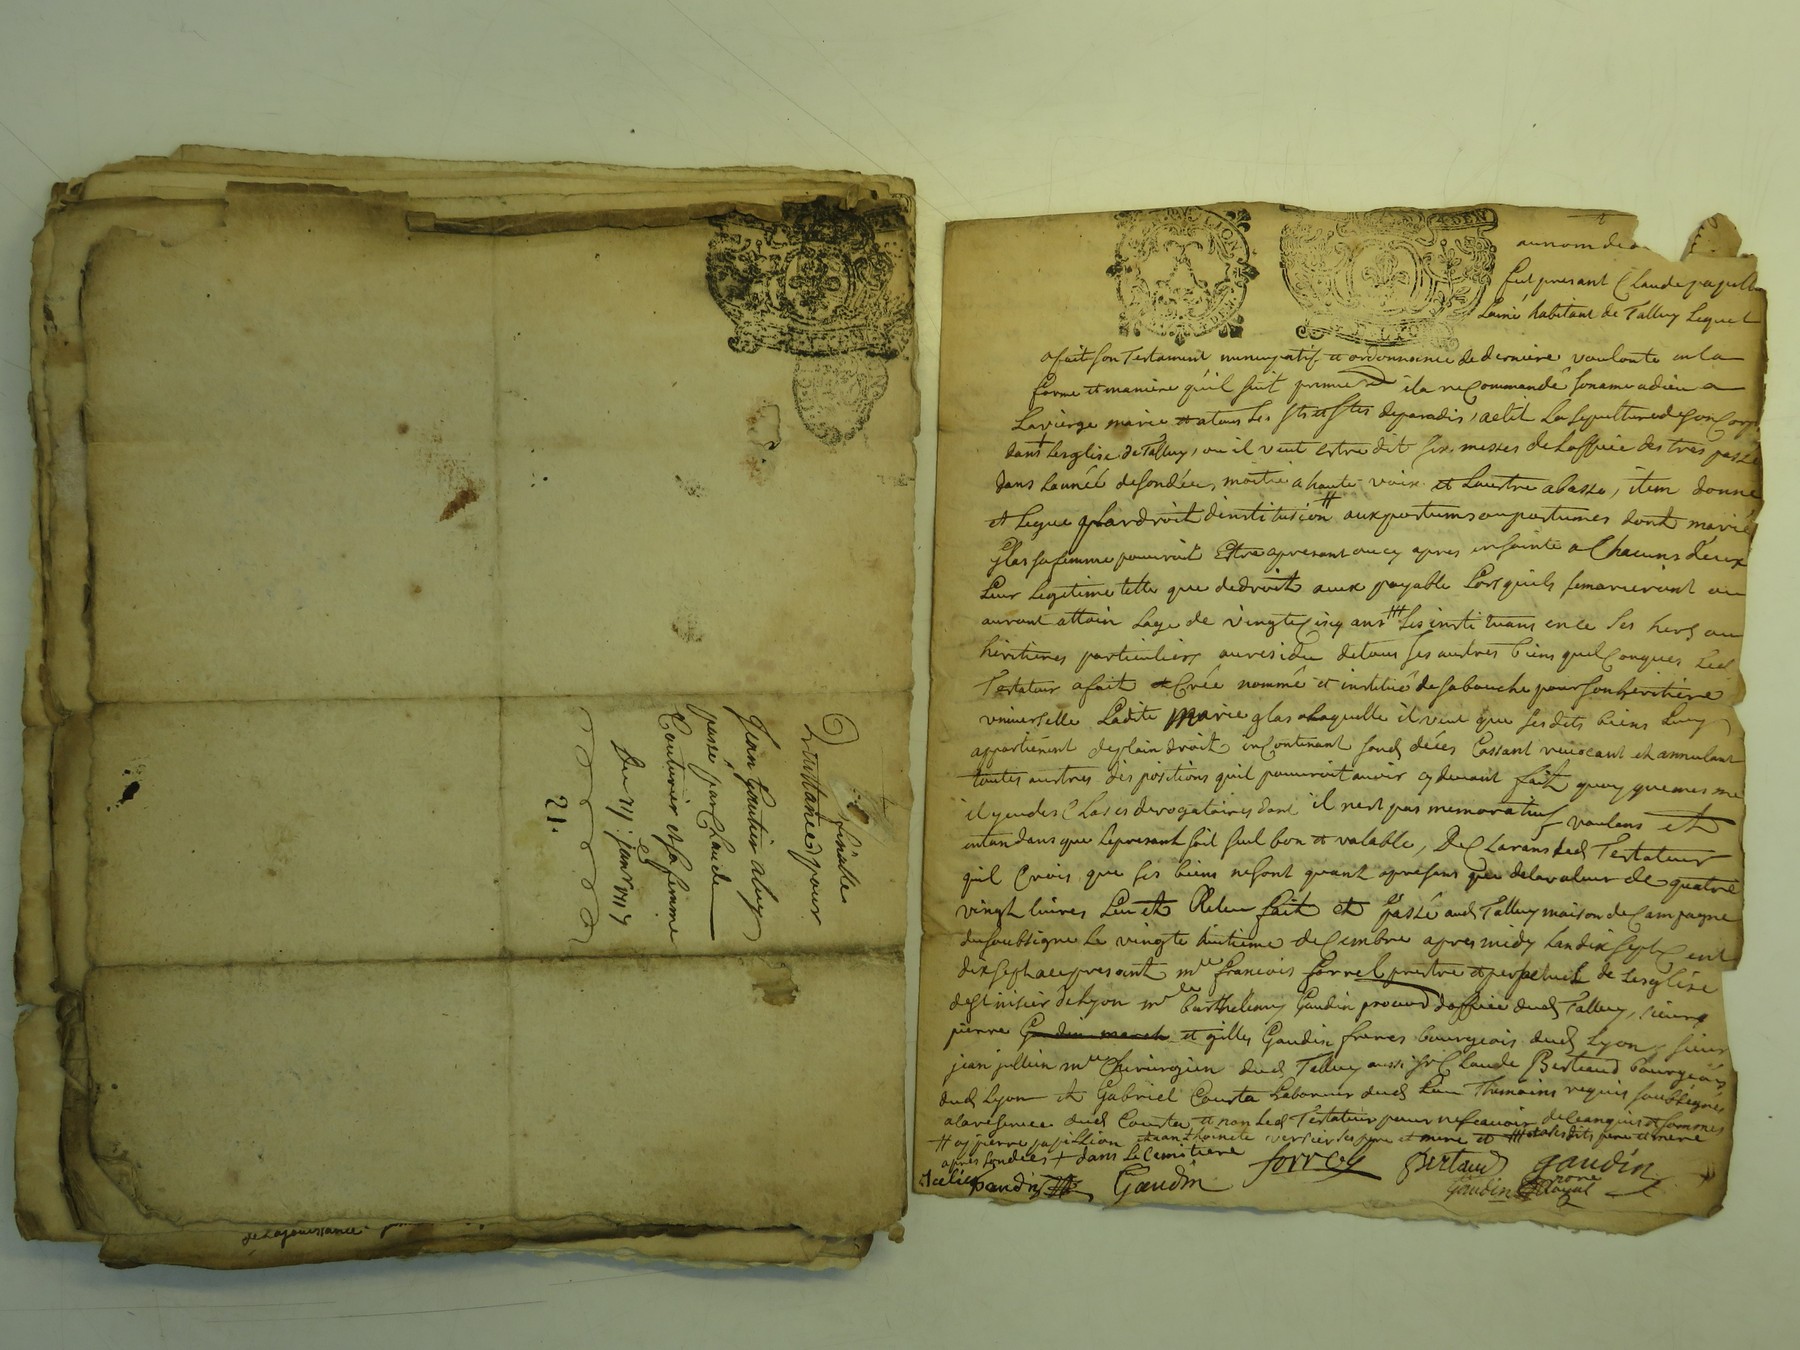 finalle
Quittance pour
Jean Gautier aleg
passé par Claude
Couturier et sa femme
Du 21e janv 1719
21.
de la jouissance
LION
DEN
au nom de
fut present Claude papill
Laîné habitant de Talluy Lequel
a fait son Testament nuncupatif et ordonnance de derniere voulonte en la
forme et maniere qu'il suit premiert il a recommandé son ame a dieu a
La vierge marie et a tous les sts et stes de paradis, a elit La sepulture de son Corps
dans Lesglise de Talluy, ou il veut estre dit six messes de Loffice des trespassé
dans Lannée de son dées, moitié a haute voix et Lautre a basse, item donne
et Legue par droit dinstitusion # aux portums ou portumes dont marie
Glas sa femme pourroit Estre apresant ou cy apres ensainte a Chacuns deux
Leur Legitime telle que de droit aux payable Lors quils se marieront ou
auront attain Lage de vingt Cinq ans ### Les instituans en ce ses hers ou
heritieres particuliers au residu de tous ses autres biens quelConques Led
Testateur a fait Crée nommé et institué de sa bouche pour son heritiere
universelle Ladite Marie glas a Laquelle il veut que sesdits biens Luy
appartienent de plain droit inContenant son d. dées Cassant revocant et annulant
toutes autres dispositions quil pourroit avoir cy devant fait quoy que mesme
il y eu des Clases derogatoires dont il nest pas memoratif voulans et
entandans que le presant soit seul bon et valable, DeClarans Led Testateur
quil Crois que ses biens ne sont quant apresans que de la valeur de quatre
vingt livres Leu et Releu fait et Passé aud Talluy maison de Campagne
du soubsigne Le vingte huitieme deCembre apres midy Lan dix sept Cent
dix sept au presant mre francois forrel prestre et perpetuel de Lesglise
de st nisier de Lyon mre barthelemy Gaudin procurd doffice dud Talluy, sieurs
pierre et gilles Gaudin freres bourgeois dud Lyon, sieur
jean jullien mre Chirurgien dud Talluy aussi sr Claude Bertaud bourgeois
dud Lyon et Gabriel Courta Laboureur dud Lieu Thémoins requis soubsignés
a la reserve dud Courta et non Led Testateur pour ne scavoir de Ceanquis et sommés
# a pierre papillion et a anthoinete versier ses pere et mere et ### et a sesdits pere et mere
apres son dées + dans Le Cemitiere
forrel Bertaud gaudin
Gaudin Gaudin
royal